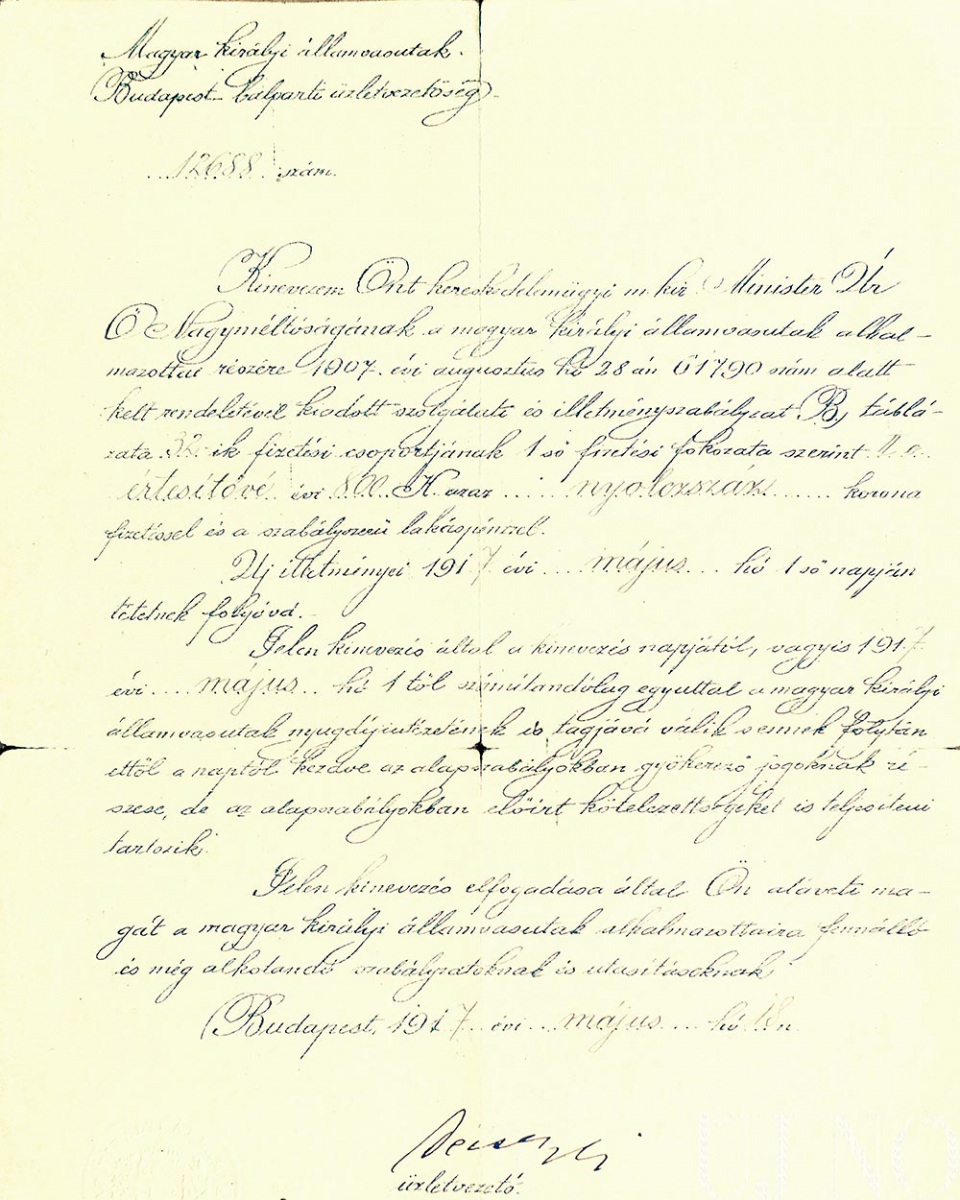 Magyar királyi államvasutak.
Budapest balparti üzletvezetőség.
12688 szám.
Kinevezem Önt kereskedelemügyi m. kir. Minister Úr
Ő Nagyméltóságának a magyar királyi államvasutak alkal-
mazottai részére 1907. évi augusztus hó 28 án 61790 szám alatt
kelt rendeletével kiadott szolgálati és illetményszabályzat B, táblá-
zata 32. ik fizetési csoportjának 1 ső fizetési fokozata szerint II. o.
értesítővé évi 800 K azaz nyolczszáz korona
fizetéssel és a szabályszerű lakáspénzzel.
Uj illetményei 1917 évi május hó 1 ső napján
tétetnek folyóvá.
Jelen kinevezés által a kinevezés napjától, vagyis 1917
évi május hó 1 től számítandólag egyuttal a magyar királyi
államvasutak nyugdíjintézetének is tagjává válik s ennek folytán
ettől a naptól kezdve az alapszabályokban gyökerező jogoknak ré-
szese, de az alapszabályokban előírt kötelezettségeket is teljesíteni
tartozik.
Jelen kinevezés elfogadása által Ön aláveti ma-
gát a magyar királyi államvasutak alkalmazottaira fennálló
és még alkotandó szabályzatoknak és utasításoknak
Budapest, 1917 évi május hó 18 n.
üzletvezető.